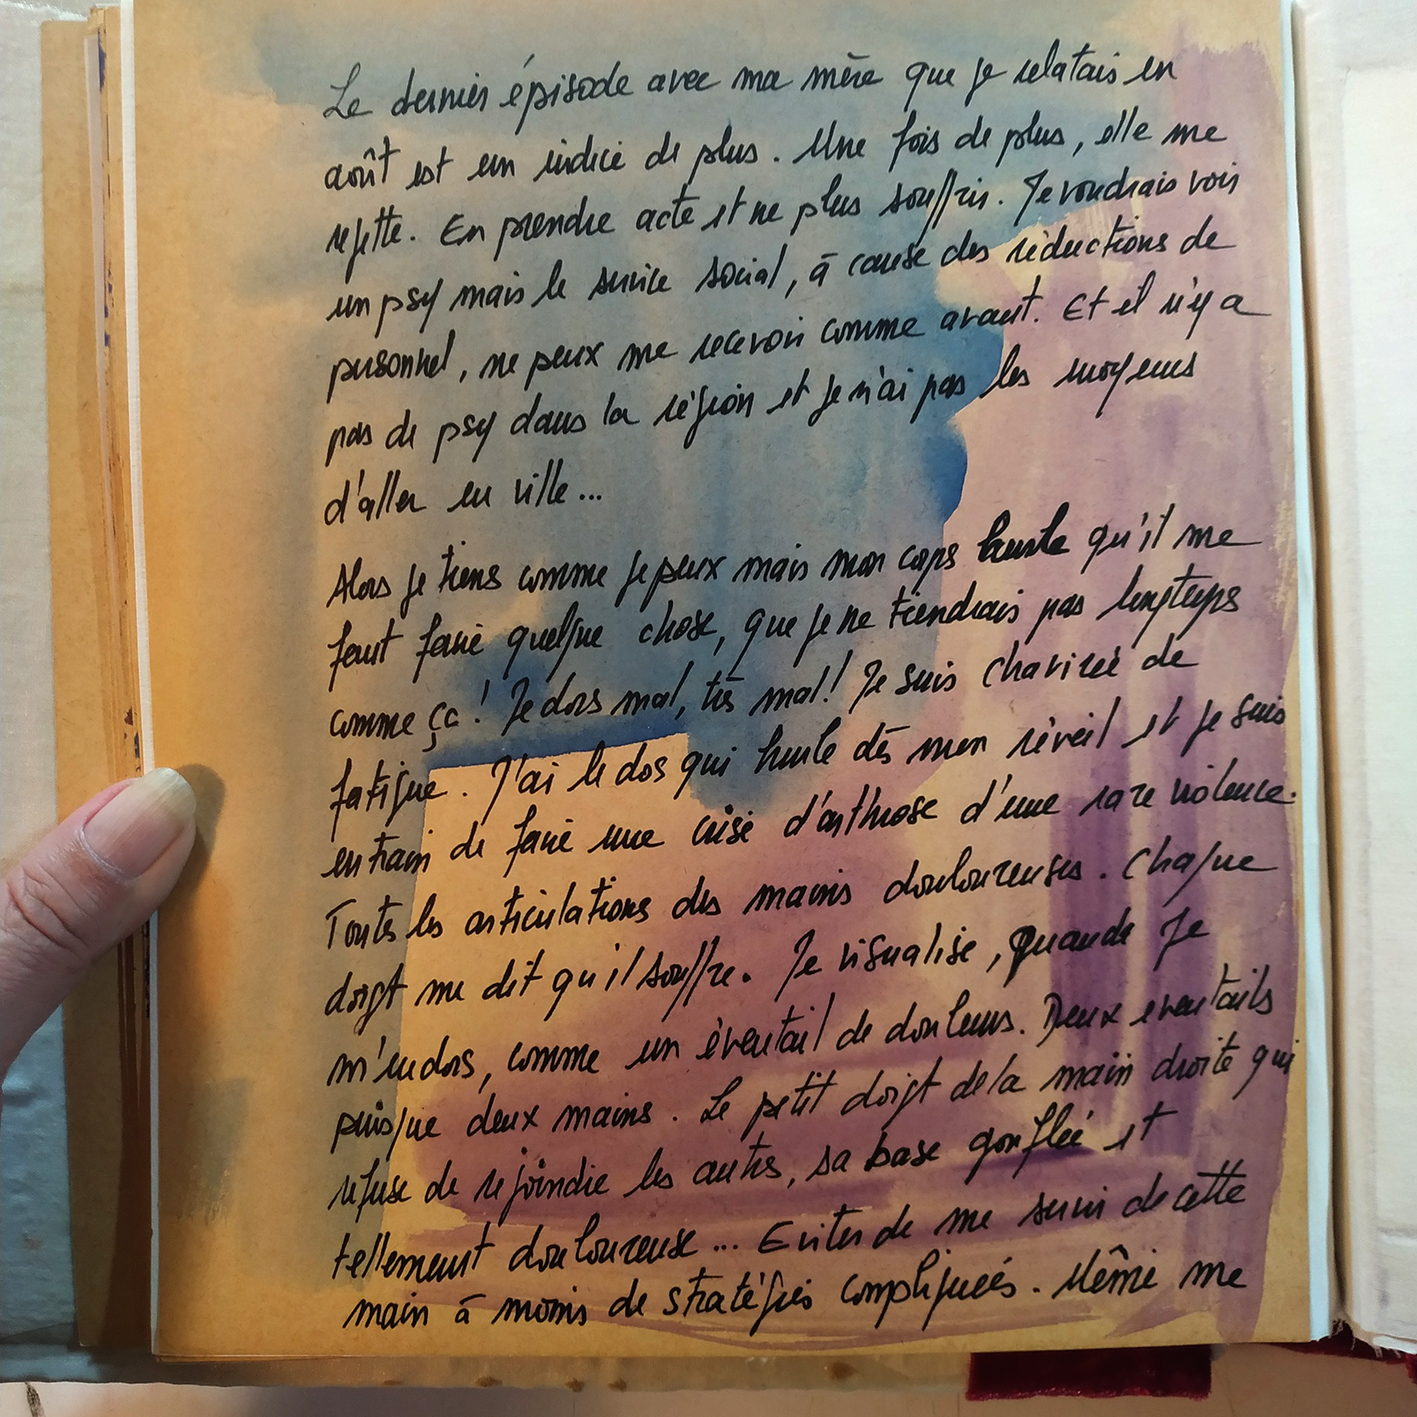 Le dernier épisode avec ma mère que je relatais en
août est un indice de plus. Une fois de plus, elle me
rejette. En prendre acte et ne plus souffrir. Je voudrais voir
un psy mais le service social, à cause des réductions de
personnel, ne peux me recevoir comme avant. Et il n'y a
pas de psy dans la région et je n'ai pas les moyens
d'aller en ville...
Alors je tiens comme je peux mais mon corps hurle qu'il me
faut faire quelque chose, que je ne tiendrais pas longtemps
comme ça ! Je dors mal, très mal ! Je suis chavirée de
fatigue. J'ai le dos qui hurle dès mon réveil et je suis
en train de faire une crise d'arthrose d'une rare violence.
Toutes les articulations des mains douloureuses. Chaque
doigt me dit qu'il souffre. Je visualise, quande je
m'endors, comme un éventail de douleurs. Deux éventails
puisque deux mains. Le petit doigt de la main droite qui
refuse de rejoindre les autres, sa base gonflée et
tellement douloureuse... Eviter de me servir de cette
main à moins de stratégies compliquées. Même me